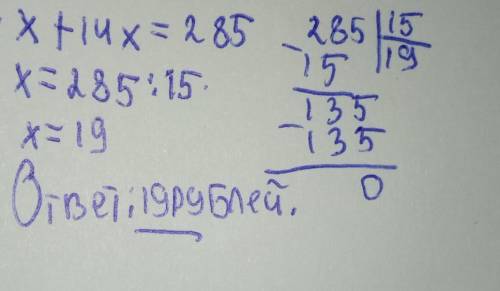 x+14x=285
x=285:15.
x=19
Ответ: 19рублей.
285 15
-15 19
135
-135
0